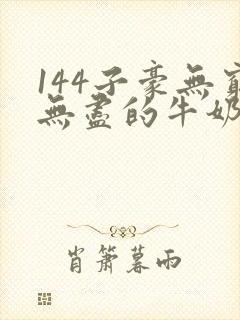 144子豪無窮
無盡的牛奶
肖簫暮雨